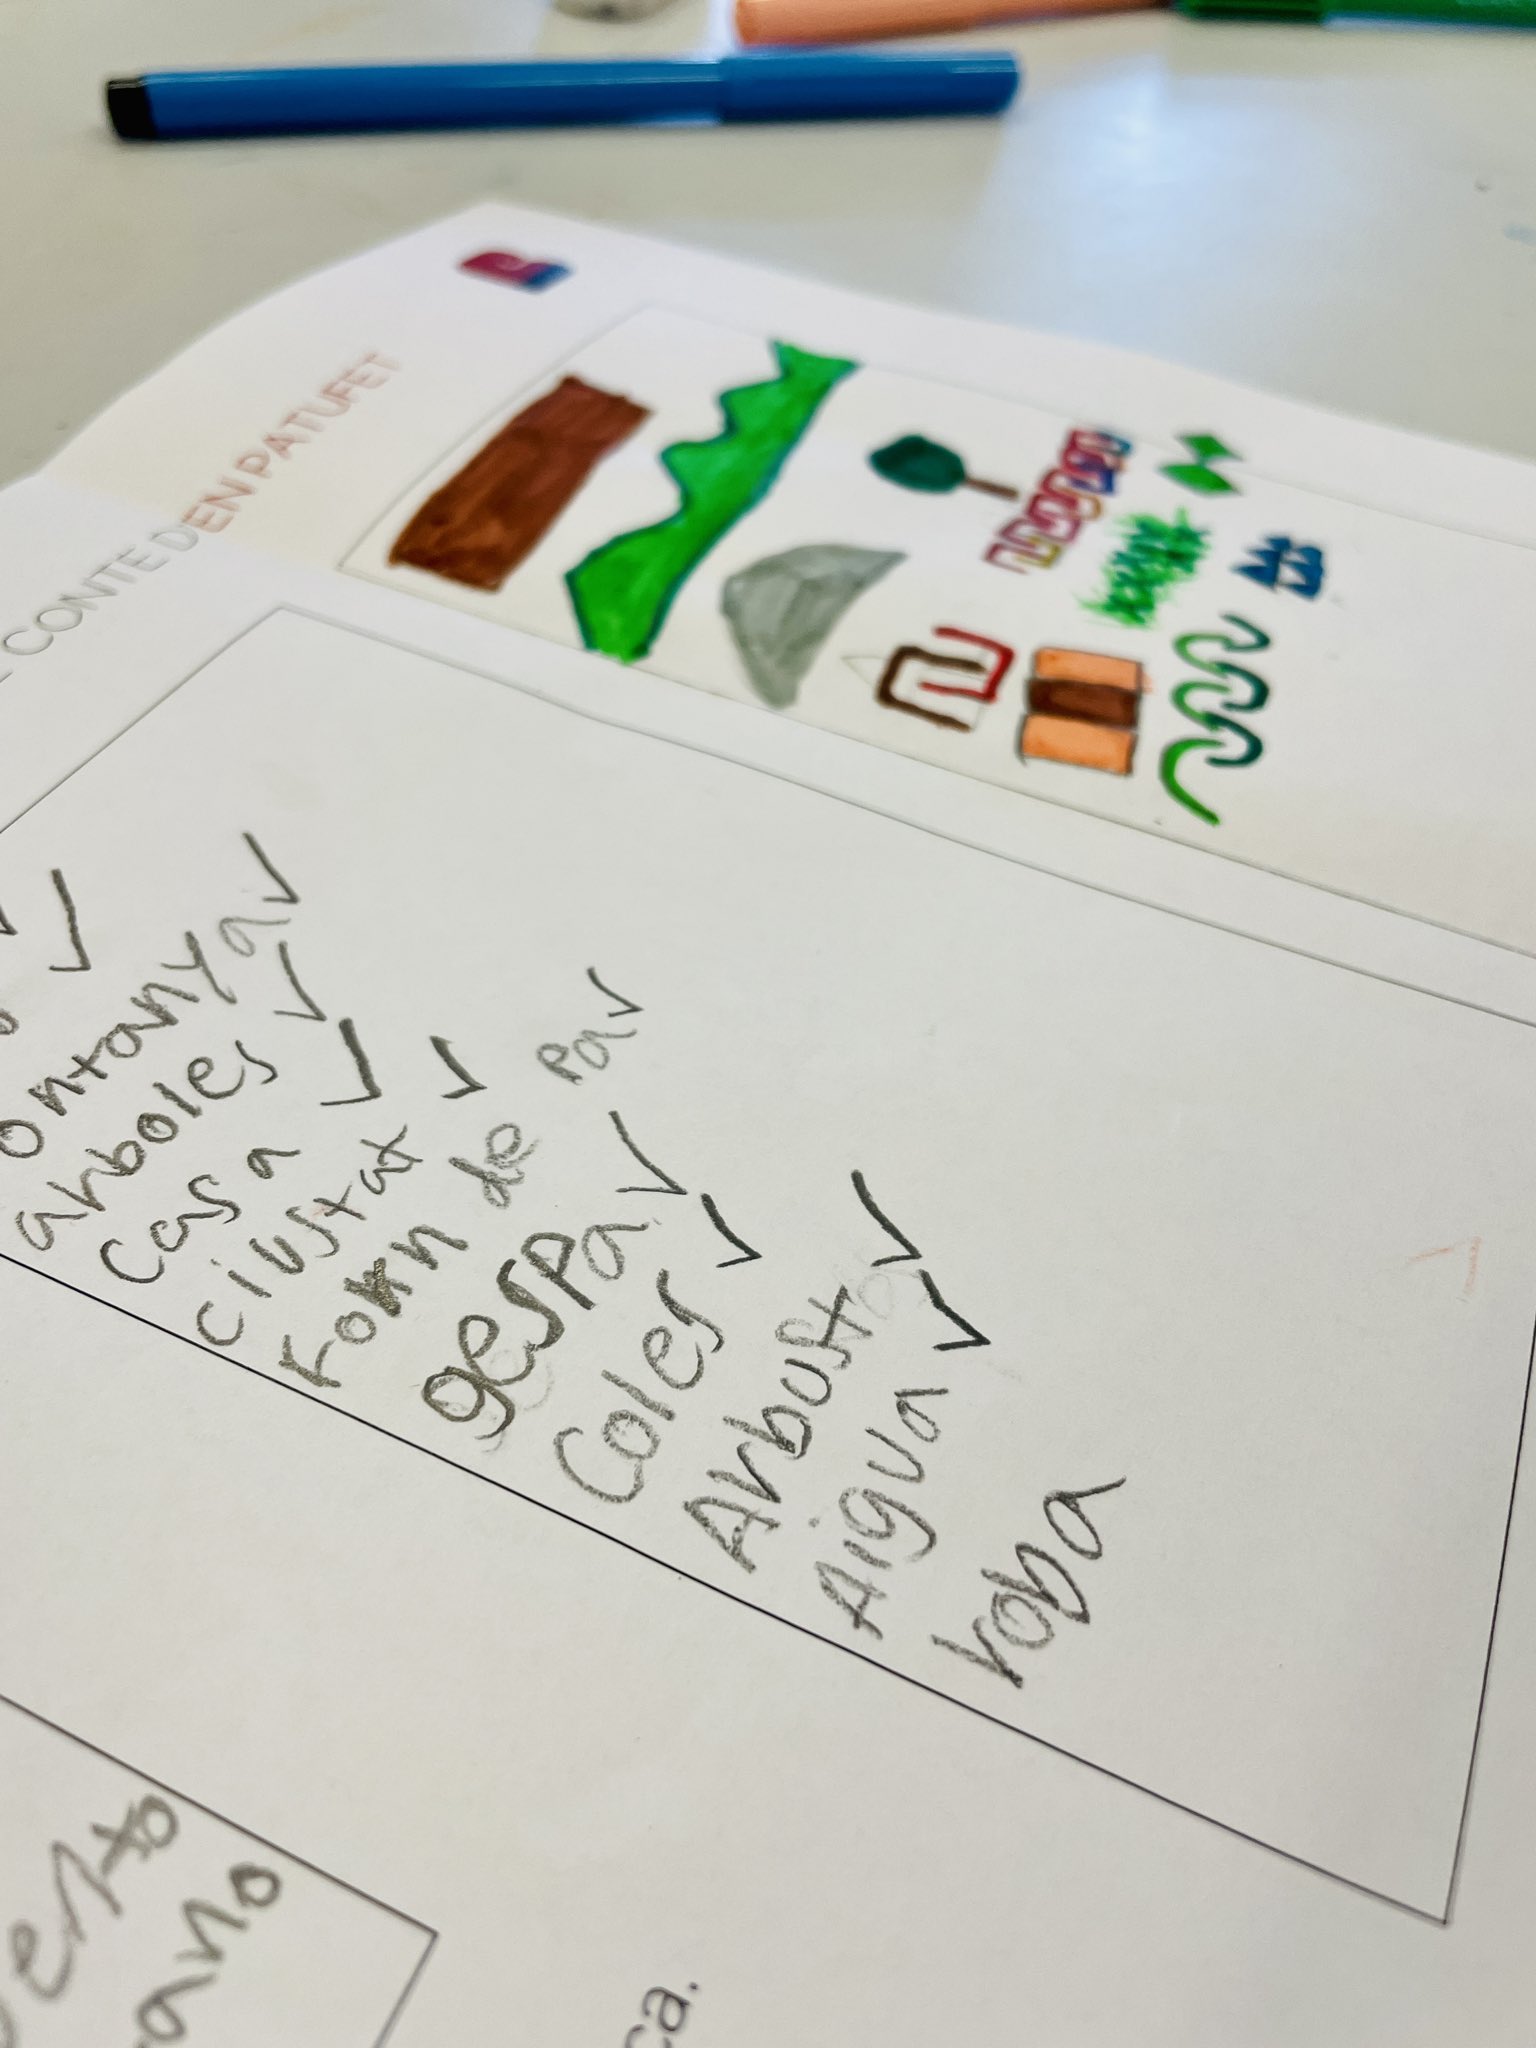 CONTE D'EN PATUFET
ontanya
arboles
casa
ciustat
Forn de pa
gespa
Coles
Arbust
Aigua
roba
ca.